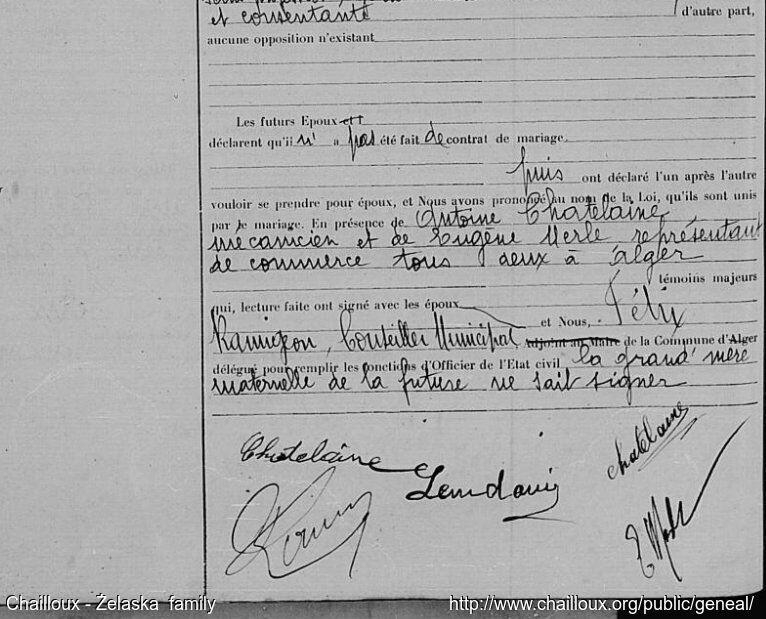 et consentante d'autre part,
aucune opposition n'existant
Les futurs Epoux
déclarent qu'il n' a pas été fait de contrat de mariage.
puis ont déclaré l'un après l'autre
vouloir se prendre pour époux, et Nous avons prononcé au nom de la Loi, qu'ils sont unis
par le mariage. En présence de Antoine Chatelaine,
mécanicien et de Eugène Merle représentant
de commerce tous deux à Alger
témoins majeurs
qui, lecture faite ont signé avec les époux et Nous, Félix
Ramigeon, Conseiller Municipal, Adjoint au Maire de la Commune d'Alger
délégué pour remplir les fonctions d'Officier de l'Etat civil la grand'mère
maternelle de la future ne sait signer
Chatelaine
chatelaine
Chailloux - Żelaska family
http://www.chailloux.org/public/geneal/